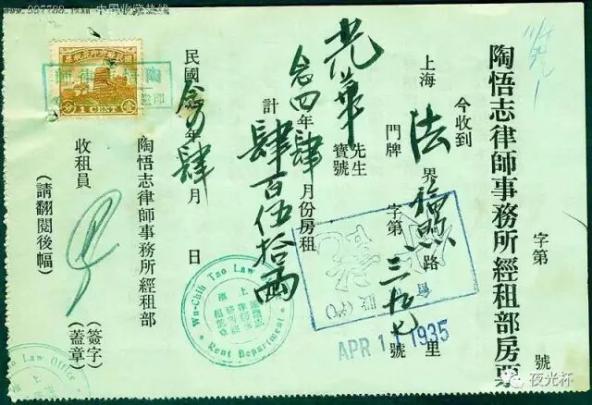 陶悟志律師事務所經租部房票
字第 號
今收到
上海法界福煦路 里
門牌 字第一三九七號
光華 先生 寶號
念四年肆月份房租
計肆百伍拾兩
民國念四年肆月 日
陶悟志律師事務所經租部
收租員
(簽字)
(蓋章)
(請翻閱後幅)
1 CENT
Wu-Chih Tao Law
Rent Department
APR 1 1935
Law Office
夜光杯